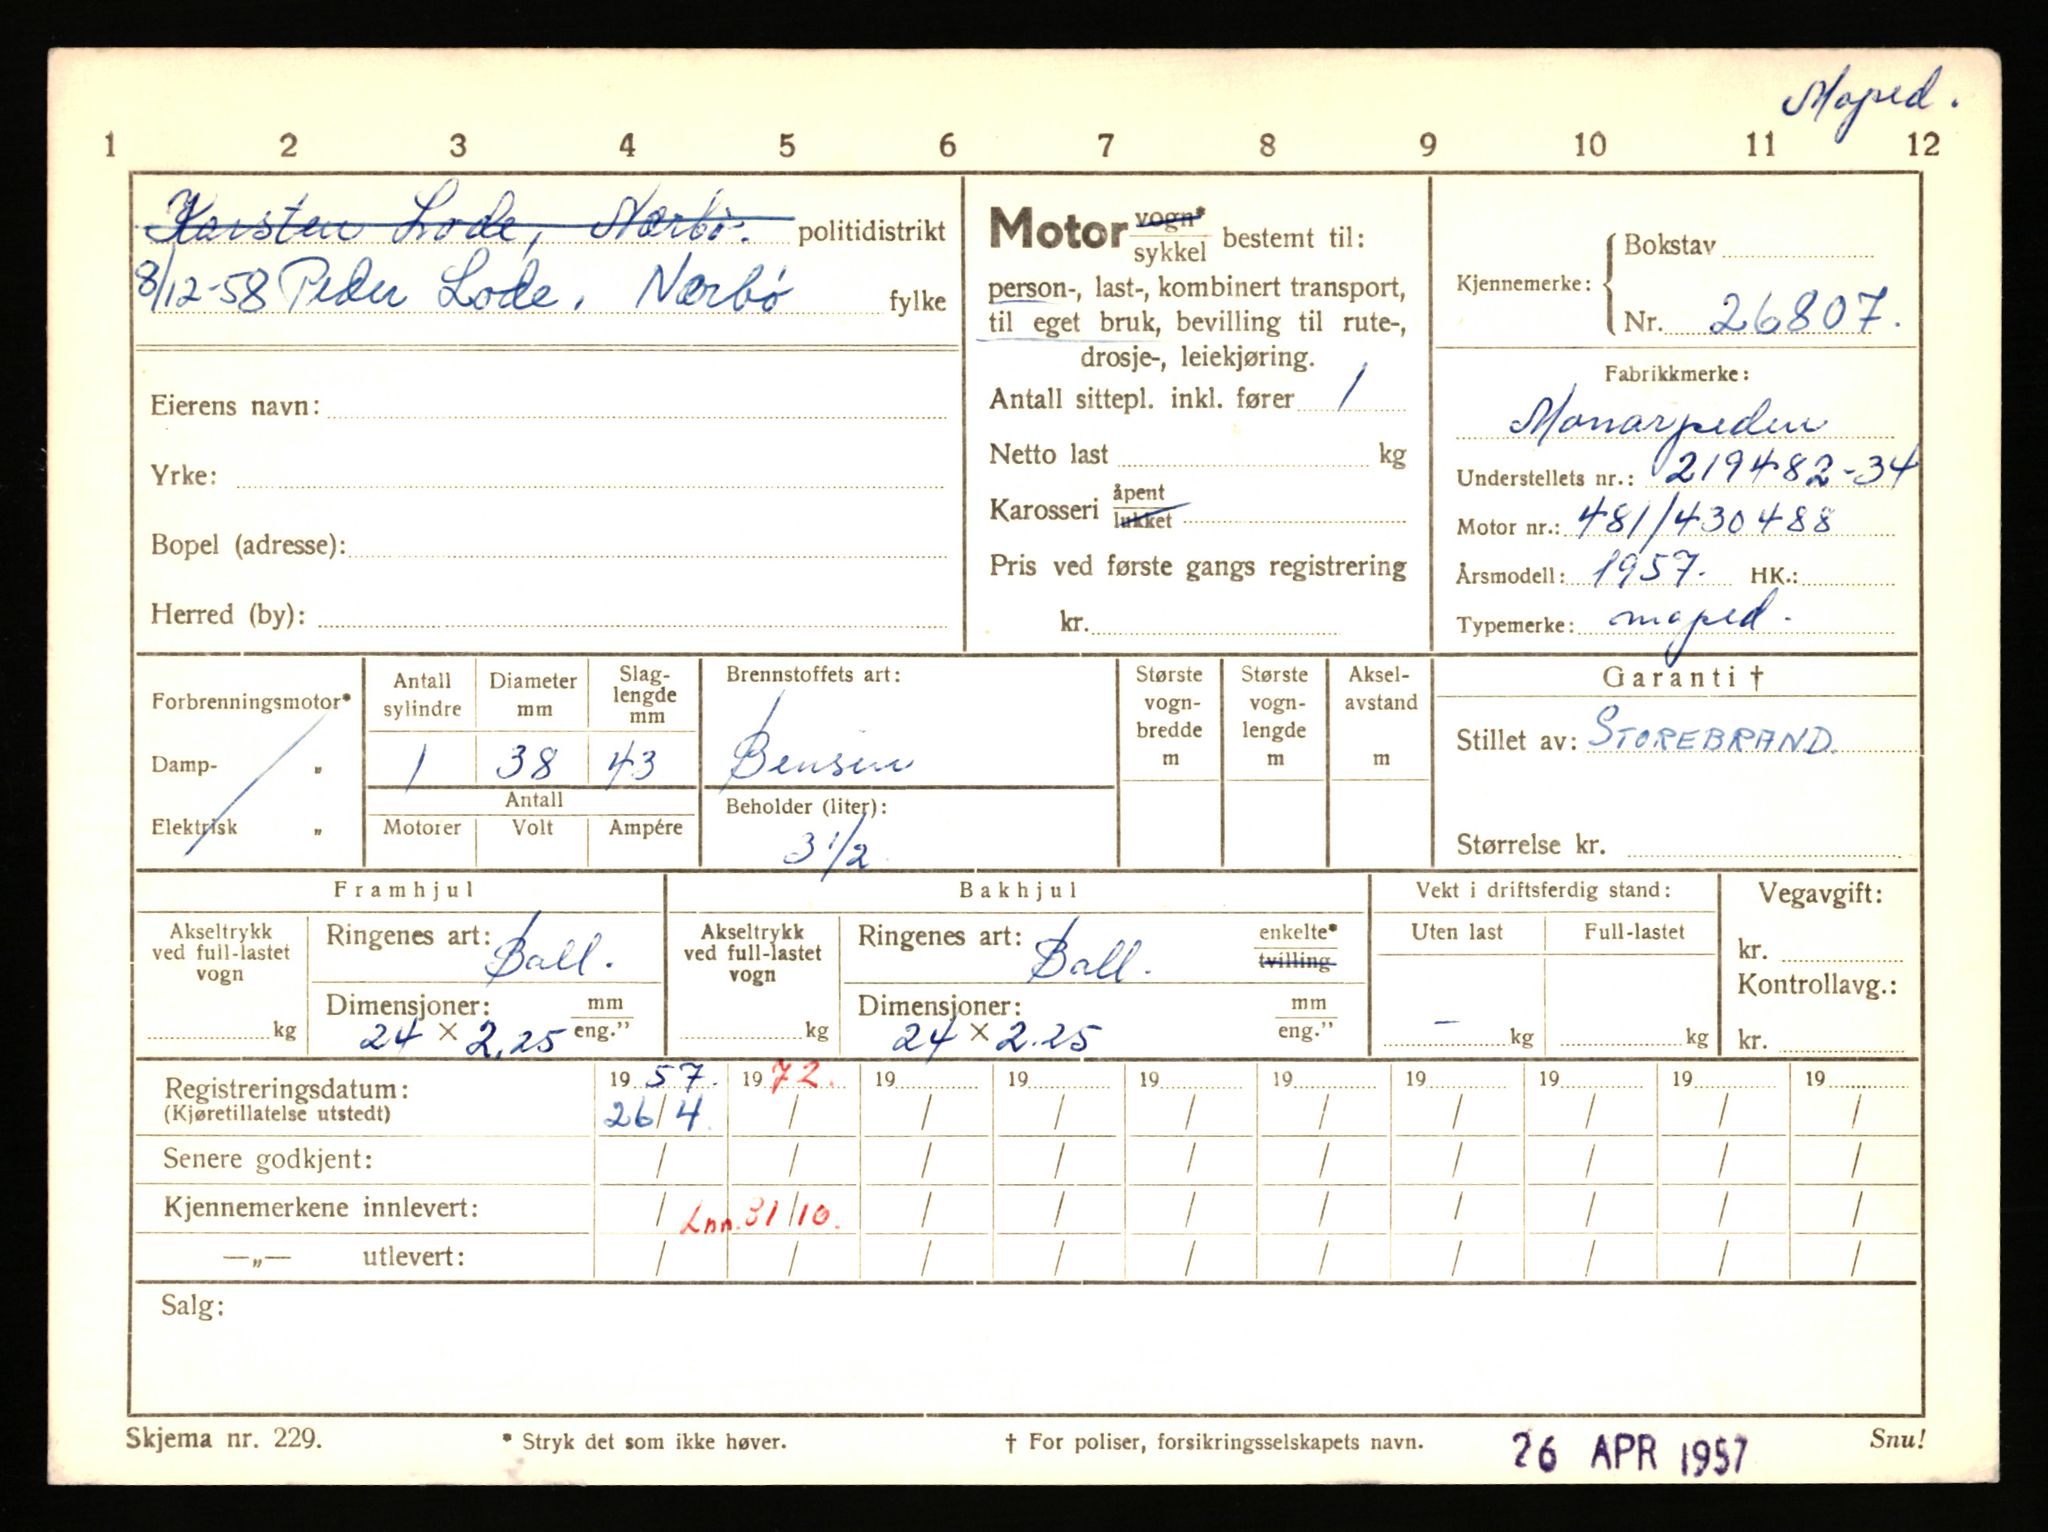 Moped.
1 2 3 4 5 6 7 8 9 10 11 12
Karsten Lode, Nærbø. politidistrikt
8/12-58 Peder Lode, Nærbø fylke
Eierens navn:
Yrke:
Bopel (adresse):
Herred (by):
Motor vogn* sykkel bestemt til:
person-, last-, kombinert transport,
til eget bruk, bevilling til rute-,
drosje-, leiekjøring.
Antall sittepl. inkl. fører 1
Netto last kg
Karosseri åpent lukket
Pris ved første gangs registrering
kr.
Kjennemerke: Bokstav
Nr. 26807.
Fabrikkmerke:
Monarpeden
Understellets nr.: 219482-34
Motor nr.: 481/430488
Årsmodell: 1957. HK.:
Typemerke: moped.
Forbrenningsmotor*
Damp- „
Elektrisk „
Antall sylindre
Diameter mm
Slag-lengde mm
1 38 43
Antall
Motorer Volt Ampére
Brennstoffets art:
Bensin
Beholder (liter):
3 1/2
Største vogn-bredde m
Største vogn-lengde m
Aksel-avstand m
Garanti †
Stillet av: STOREBRAND.
Størrelse kr.
Framhjul
Akseltrykk ved full-lastet vogn
kg
Ringenes art: Ball.
Dimensjoner: mm eng.”
24 × 2,25
Bakhjul
Akseltrykk ved full-lastet vogn
kg
Ringenes art: Ball. enkelte* tvilling
Dimensjoner: mm eng.”
24 × 2.25
Vekt i driftsferdig stand:
Uten last Full-lastet
– kg kg
Vegavgift:
kr.
Kontrollavg.:
kr.
Registreringsdatum: 19 57. 19 72. 19 19 19 19 19 19 19 19
(Kjøretillatelse utstedt) 26/4. / / / / / / / / /
Senere godkjent: / / / / / / / / / /
Kjennemerkene innlevert: / Inn. 31/10. / / / / / / / /
—„— utlevert: / / / / / / / / / /
Salg:
Skjema nr. 229. * Stryk det som ikke høver. † For poliser, forsikringsselskapets navn. 26 APR 1957 Snu!